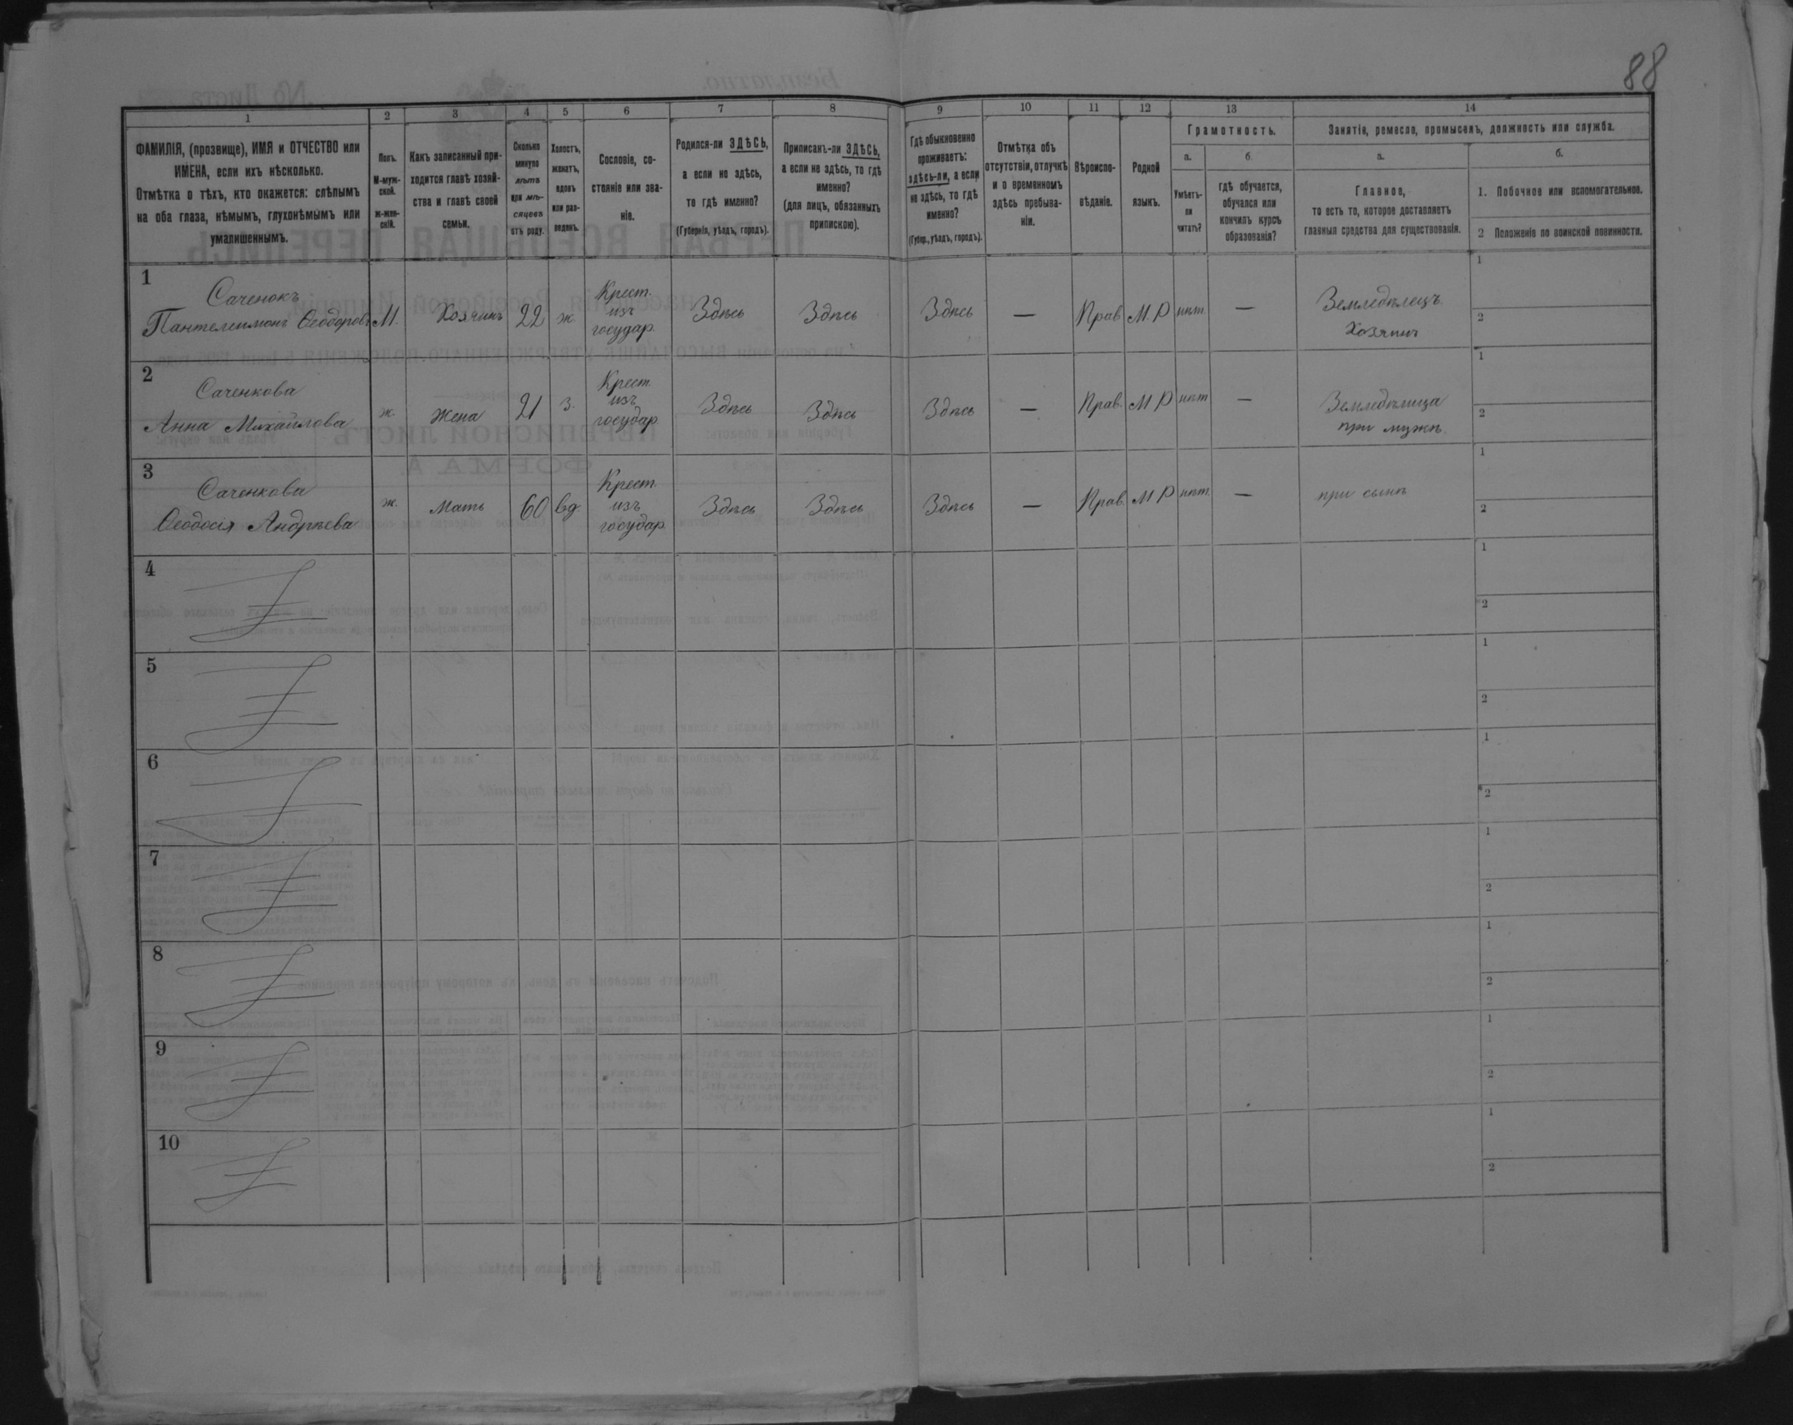 88
1 2 3 4 5 6 7 8 9 10 11 12 13 14
ФАМИЛІЯ, (прозвище), ИМЯ и ОТЧЕСТВО или
ИМЕНА, если ихъ нѣсколько.
Отмѣтка о тѣхъ, кто окажется: слѣпымъ
на оба глаза, нѣмымъ, глухонѣмымъ или
умалишеннымъ.
Полъ.
М-муж-
ской.
ж-жен-
скій.
Какъ записанный при-
ходится главѣ хозяй-
ства и главѣ своей
семьи.
Сколько
минуло
лѣтъ
или мѣ-
сяцевъ
отъ роду.
Холостъ,
женатъ,
вдовъ
или раз-
веденъ.
Сословіе, со-
стояніе или зва-
ніе.
Родился-ли ЗДѢСЬ,
а если не здѣсь,
то гдѣ именно?
(Губернія, уѣздъ, городъ).
Приписанъ-ли ЗДѢСЬ,
а если не здѣсь, то гдѣ
именно?
(для лицъ, обязанныхъ
припискою).
Гдѣ обыкновенно
проживаетъ:
здѣсь-ли, а если
не здѣсь, то гдѣ
именно?
(Губер., уѣздъ, городъ).
Отмѣтка объ
отсутствіи, отлучкѣ
и о временномъ
здѣсь пребыва-
ніи.
Вѣроиспо-
вѣданіе.
Родной
языкъ.
Грамотность.
а.
Умѣетъ-
ли
читать?
б
гдѣ обучается,
обучался или
кончилъ курсъ
образованія?
Занятіе, ремесло, промыселъ, должность или служба.
а.
Главное,
то есть то, которое доставляетъ
главныя средства для существованія.
б.
1. Побочное или вспомогательное.
2 Положеніе по воинской повинности.
1
Саченокъ
Пантелеимонъ Ѳеодоровъ
М.
Хозяинъ
22
ж
Крест.
изъ
государ.
Здѣсь
Здѣсь
Здѣсь
—
Прав
М. Р
нѣт.
—
Земледѣлецъ
Хозяинъ
1
2
2
Саченкова
Анна Михайлова
ж.
Жена
21
з.
Крест
изъ
государ
Здѣсь
Здѣсь
Здѣсь
—
Прав.
М Р
нѣт
—
Земледѣлица
при мужѣ.
1
2
3
Саченкова
Ѳеодосія Андрѣева
ж.
Мать
60
вд
Крест.
изъ
государ
Здѣсь
Здѣсь
Здѣсь
—
Прав.
М Р
нѣт.
—
при сынѣ
1
2
4
1
2
5
1
2
6
1
2
7
1
2
8
1
2
9
1
2
10
1
2